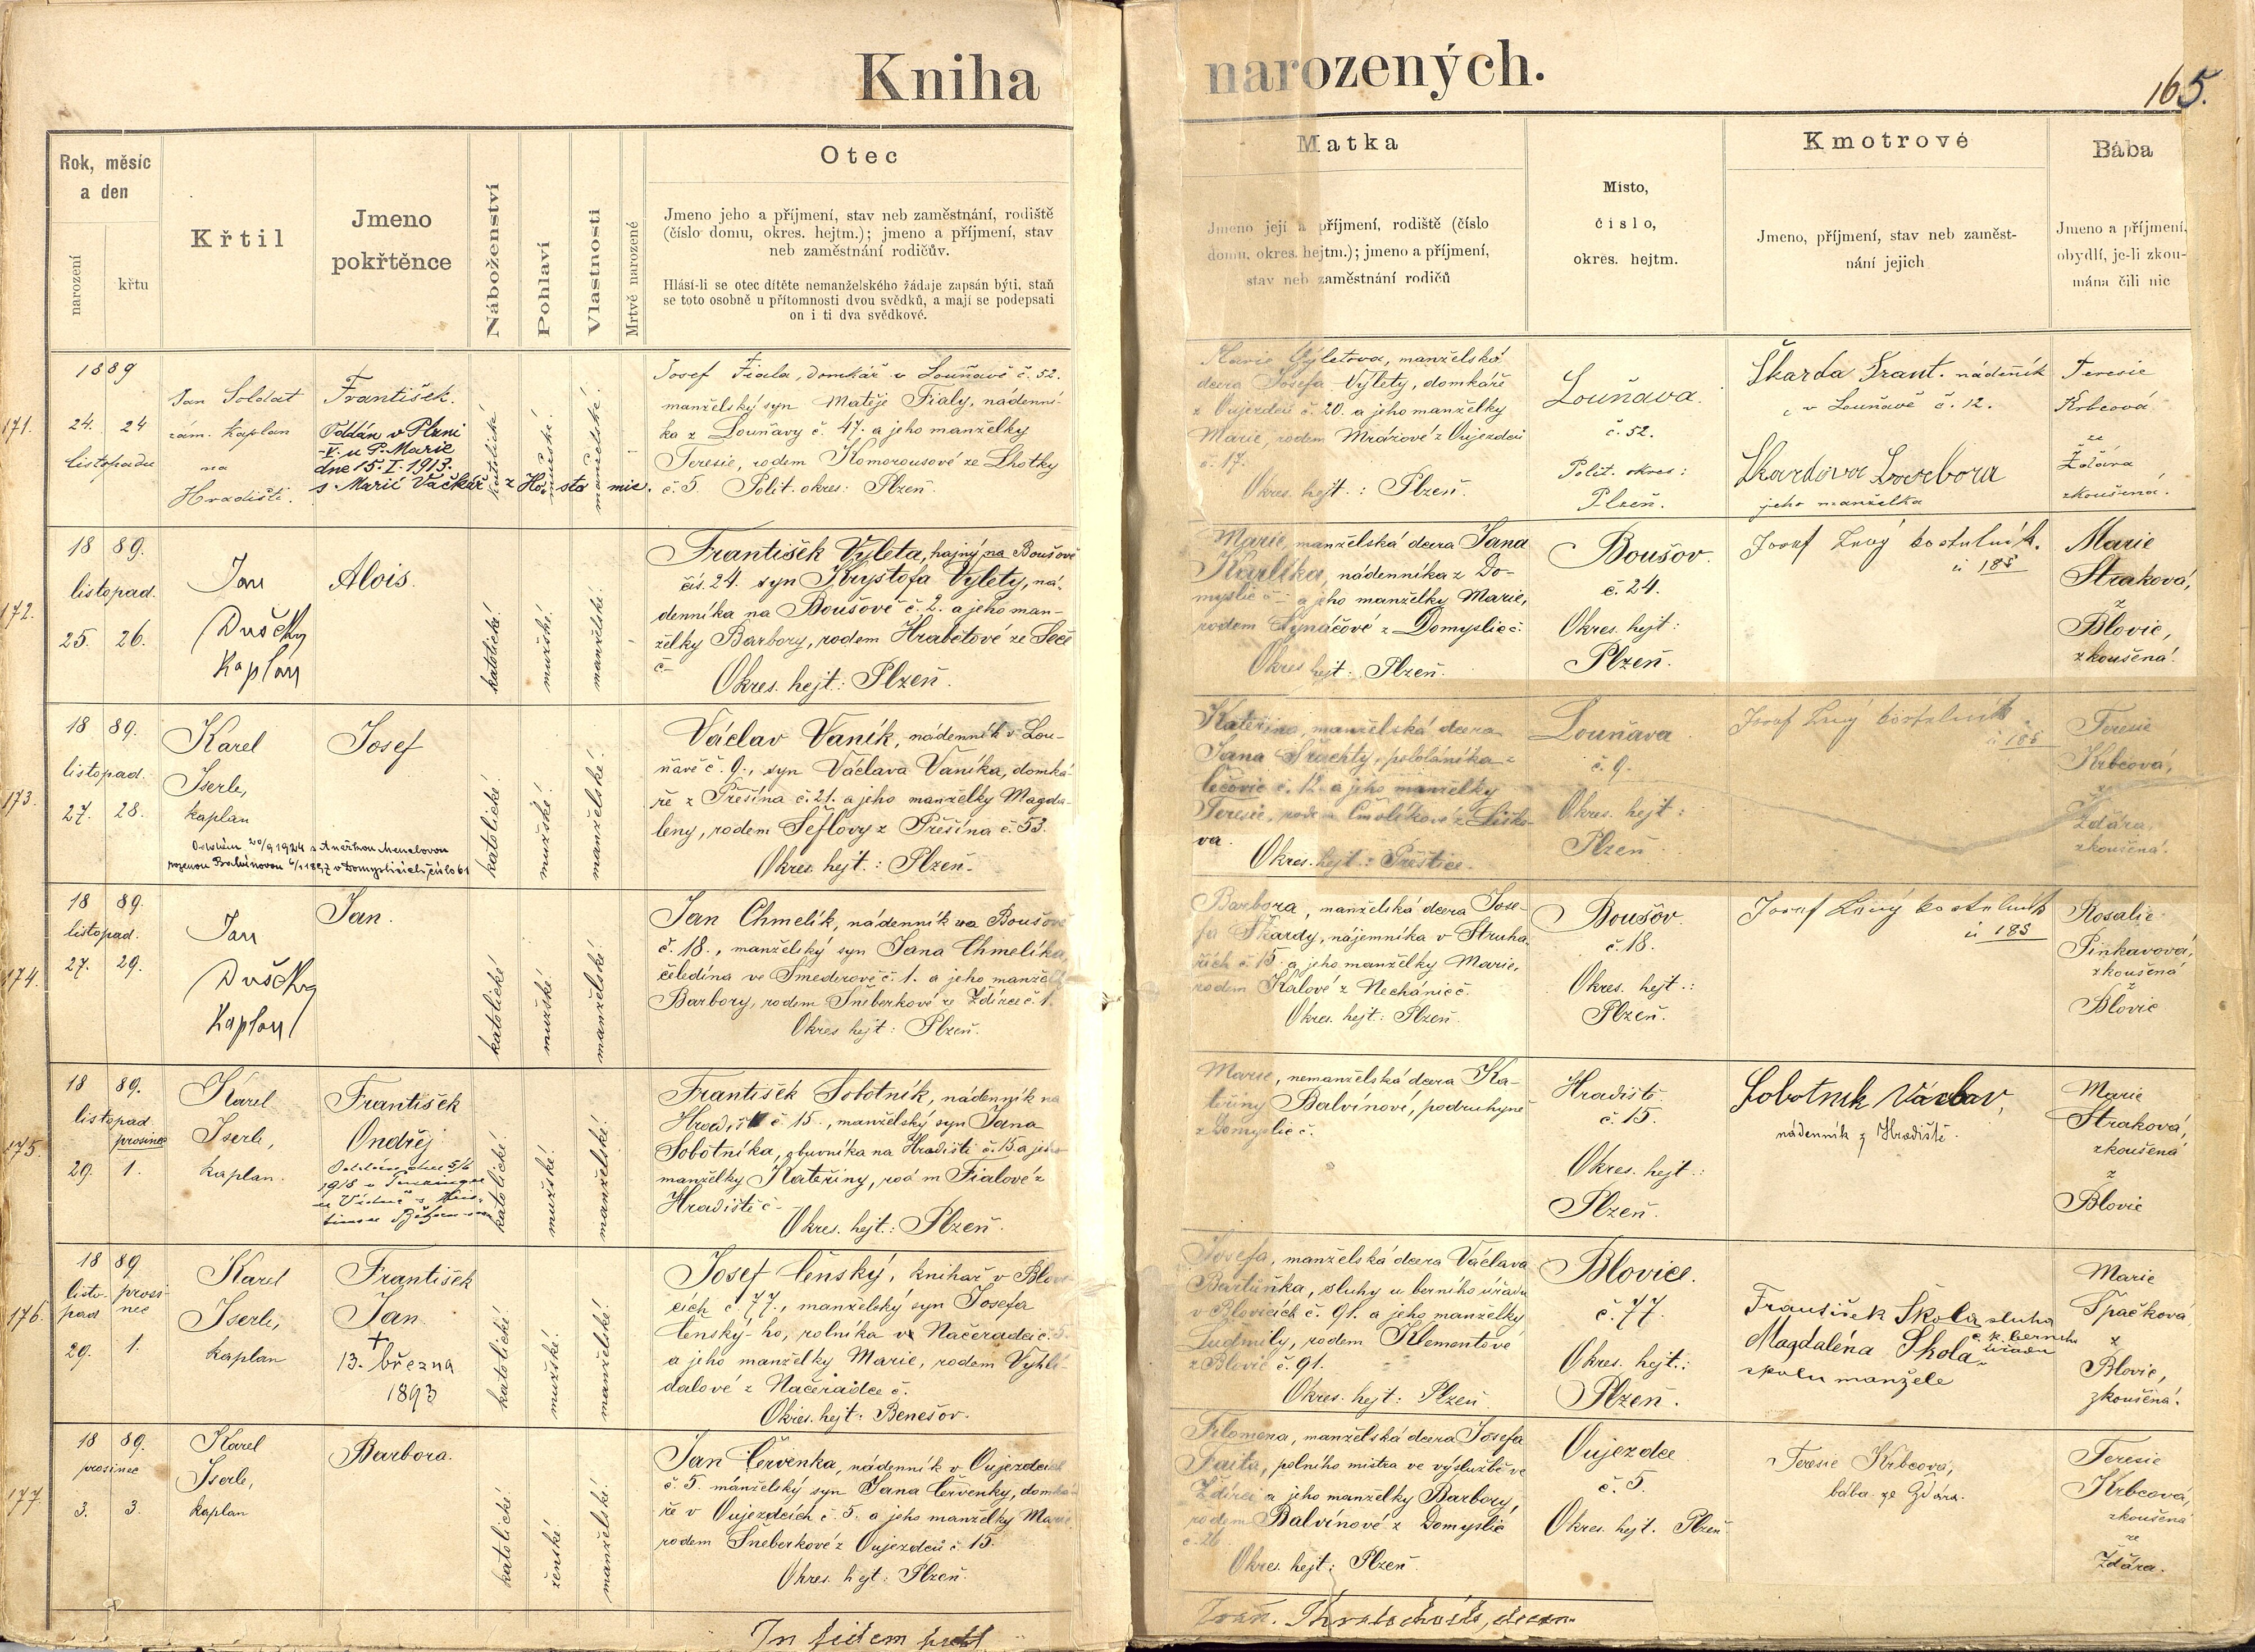 Kniha narozených.
165.
Rok, měsíc
a den
narození
křtu
Křtil
Jmeno
pokřtěnce
Náboženství
Pohlaví
Vlastnosti
Mrtvě narozené
Otec
Jmeno jeho a příjmení, stav neb zaměstnání, rodiště
(číslo domu, okres. hejtm.); jmeno a příjmení, stav
neb zaměstnání rodičův.
Hlásí-li se otec dítěte nemanželského žádaje zapsán býti, staň
se toto osobně u přítomnosti dvou svědků, a mají se podepsati
on i ti dva svědkové.
Matka
Jmeno její a příjmení, rodiště (číslo
domu, okres. hejtm.); jmeno a příjmení,
stav neb zaměstnání rodičů
Místo,
číslo,
okres. hejtm.
Kmotrové
Jmeno, příjmení, stav neb zaměst-
nání jejich
Bába
Jmeno a příjmení,
obydlí, je-li zkou-
mána čili nic
171.
1889
24. 24
listopadu
Jan Soldat
zám. kaplan
na
Hradišti.
František.
Oddán v Plzni
u P. Marie
dne 15. I. 1913.
s Marií Vačkář z Ho- sto mic.
katolické
mužské.
manželské.
Josef Fiala, domkář v Louňavě č. 52.
manželský syn Matěje Fialy, nádenní-
ka z Louňavy č. 47. a jeho manželky
Teresie, rodem Komorousové ze Lhotky
č. 5. Polit. okres: Plzeň.
Marie Výletova, manželská
dcera Josefa Výlety, domkáře
z Oujezdců č. 20. a jeho manželky
Marie, rodem Mrázové z Oujezdců
č. 17.
Okres. hejt.: Plzeň.
Louňava.
č. 52.
Polit. okres:
Plzeň.
Škarda Frant. nádeník
v Louňavě č. 12.
Škardova Barbora
jeho manželka
Teresie
Krbcová
ze
Ždára
zkoušená.
172.
18 89.
listopad.
25. 26.
Jan
Dušek
Kaplan
Alois.
katolické.
mužské.
manželské.
František Výleta, hajný na Boušově
čís. 24. syn Kryštofa Výlety, ná-
denníka na Boušově č. 2. a jeho man-
želky Barbory, rodem Hrabětové ze Seče
č –
Okres. hejt.: Plzeň.
Marie, manželská dcera Jana
Karlíka, nádenníka z Do-
myslic č – a jeho manželky Marie,
rodem z Domyslic č.
Okres hejt.: Plzeň.
Boušov.
č. 24.
Okres. hejt:
Plzeň.
Josef Levý kostelník.
č 185
Marie
Straková,
z
Blovic,
zkoušená.
173.
18 89.
listopad.
27. 28.
Karel
Iserle,
kaplan
Josef
rozenou v Domyslicích číslo 61
katolické.
mužské.
manželské.
Václav Vaník, nádenník v Lou-
ňavě č. 9., syn Václava Vaníka, domká-
ře z Přešína č. 21. a jeho manželky Magda-
leny, rodem Šeflovy z Přešína č. 53.
Okres. hejt.: Plzeň.
Kateřina, manželská dcera
Jana pololáníka z
č. 12. a jeho manželky
Teresie, rodem z Lisko-
va.
Okres. hejt.: Přeštice.
Louňava.
č. 9.
Okres. hejt:
Plzeň
Josef Levý kostelník
č 185
Teresie
Krbcová,
ze
Ždára,
zkoušená.
174.
18 89.
listopad.
27. 29.
Jan
Dušek
Kaplan
Jan.
katolické
mužské.
manželské
Jan Chmelík, nádenník na Boušově
č. 18., manželský syn Jana Chmelíka,
čeledína ve Smederově č. 1. a jeho manželky
Barbory, rodem Šneberkové ze Ždírce č. 1.
Okres hejt: Plzeň.
Barbora, manželská dcera Jose-
fa Škardy, nájemníka v Struha-
řích č. 15 a jeho manželky Marie,
rodem Kalové z Nechánic č.
Okres. hejt: Plzeň.
Boušov
č. 18.
Okres. hejt.:
Plzeň.
Josef Levý kostelník
č 185
Rosalie
Pinkavová,
zkoušená
z
Blovic
175.
18 89.
listopad
prosinec
29. 1.
Karel
Iserle,
kaplan.
František
Ondřej
katolické.
mužské.
manželské.
František Sobotník, nádenník na
Hradišti č. 15., manželský syn Jana
Sobotníka, obuvníka na Hradišti č. 15 a jeho
manželky Kateřiny, rodem Fialové z
Hradiště č –
Okres. hejt.: Plzeň.
Marie, nemanželská dcera Ka-
teřiny Balvínové, podruhyně
z Domyslic č.
Hradiště
č. 15.
Okres. hejt.:
Plzeň.
Sobotnik Václav,
nádenník z Hradiště.
Marie
Straková,
zkoušená
z
Blovic
176.
18 89.
listo- prosi-
pad nec
29. 1.
Karel
Iserle,
kaplan
František
Jan
+
13. března
1893
katolické.
mužské.
manželské.
Josef Čenský, knihař v Blovi-
cích č. 77., manželský syn Josefa
Čenský-ho, rolníka v Načeradci č. 5.
a jeho manželky Marie, rodem Vyhlí-
dalové z Načeradce č.
Okres. hejt: Benešov.
Josefa, manželská dcera Václava
Bartůňka, sluhy u berního úřadu
v Blovicích č. 91. a jeho manželky
Ludmily, rodem Klementové
z Blovic č. 91.
Okres. hejt: Plzeň
Blovice.
č. 77.
Okres. hejt.:
Plzeň.
František Škola sluha
c. k. berního
úřadu
Magdaléna Škola
spolu manžele
Marie
Špačková
z
Blovic,
zkoušená.
177.
18 89.
prosinec
3. 3.
Karel
Iserle,
kaplan
Barbora.
katolické
ženské.
manželské.
Jan Červenka, nádenník v Oujezdcích
č. 5. manželský syn Jana Červenky, domká-
ře v Oujezdcích č. 5. a jeho manželky Marie,
rodem Šneberkové z Oujezdců č. 15.
Okres. hejt: Plzeň.
Filomena, manželská dcera Josefa
Faita, polního mistra ve výslužbě ve
Ždírci a jeho manželky Barbory,
rodem Balvínové z Domyslic
č. 26
Okres. hejt: Plzeň.
Oujezdce
č. 5.
Okres. hejt. Plzeň
Teresie Krbcová,
bába ze Ždára.
Teresie
Krbcová,
zkoušená
ze
Ždára.
In fidem